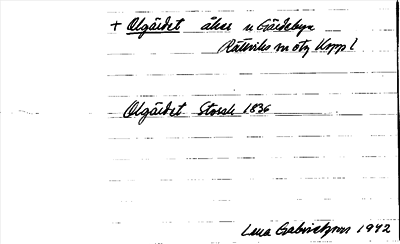 + Olgärdet åker n Gärdebyn
Rättviks sn
Olgärdet. Storsk 1836
Lena Gabrielsson 1942